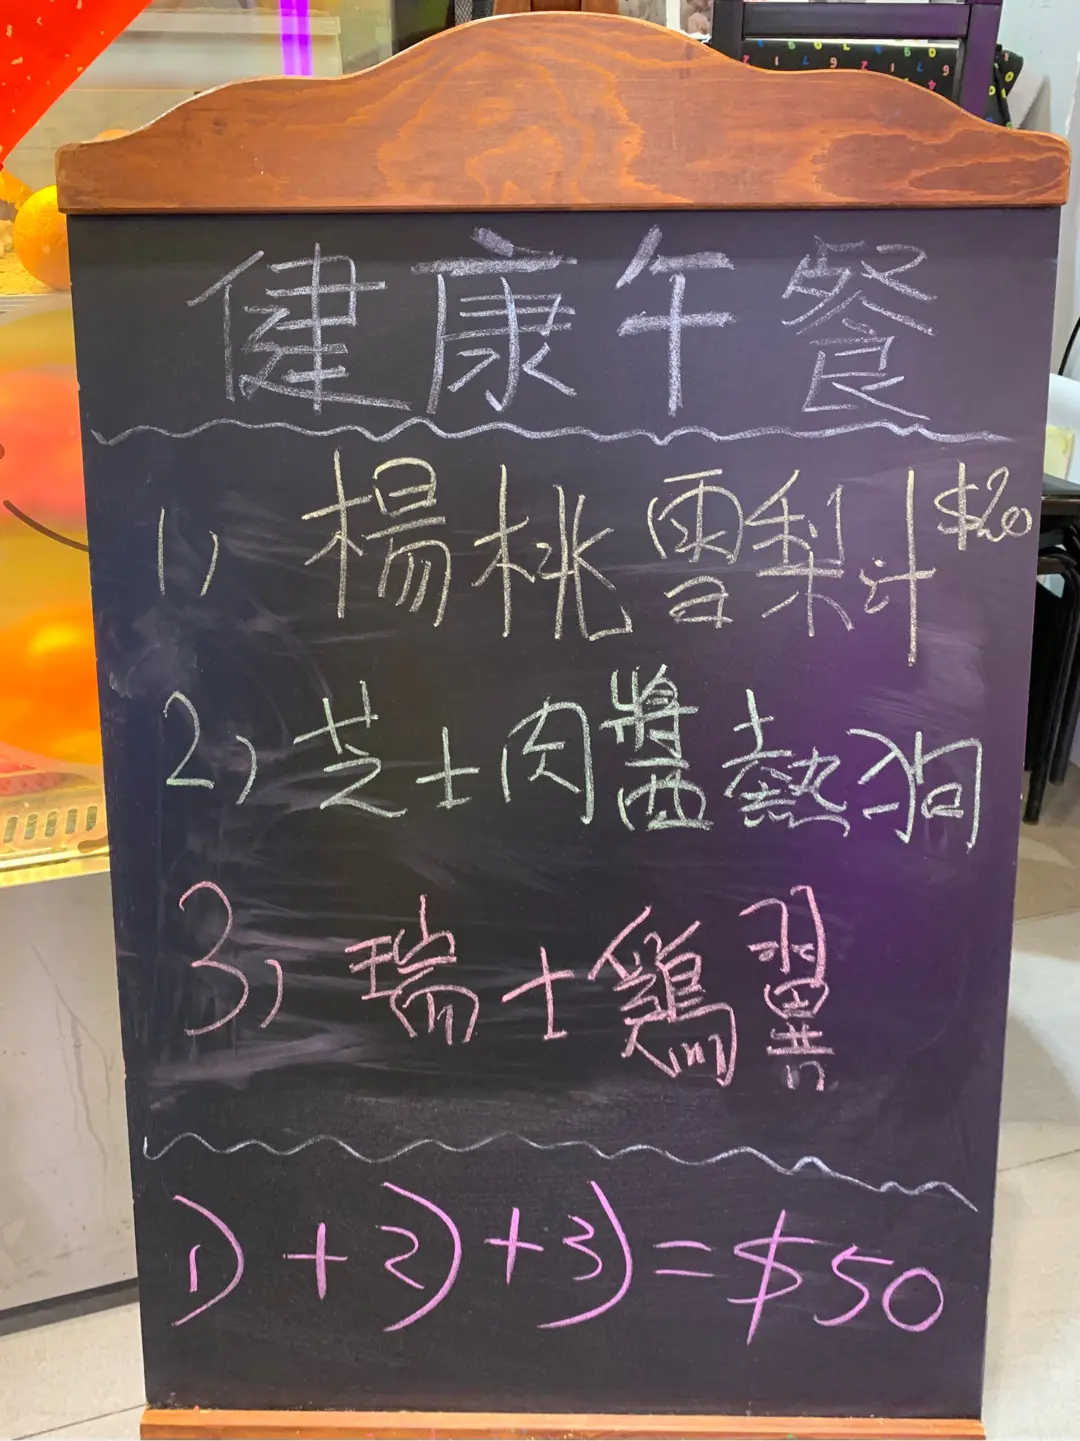 健康午餐
1) 楊桃雪梨汁 $20
2) 芝士肉醬熱狗
3) 瑞士鷄翼
1) + 2) + 3) = $50